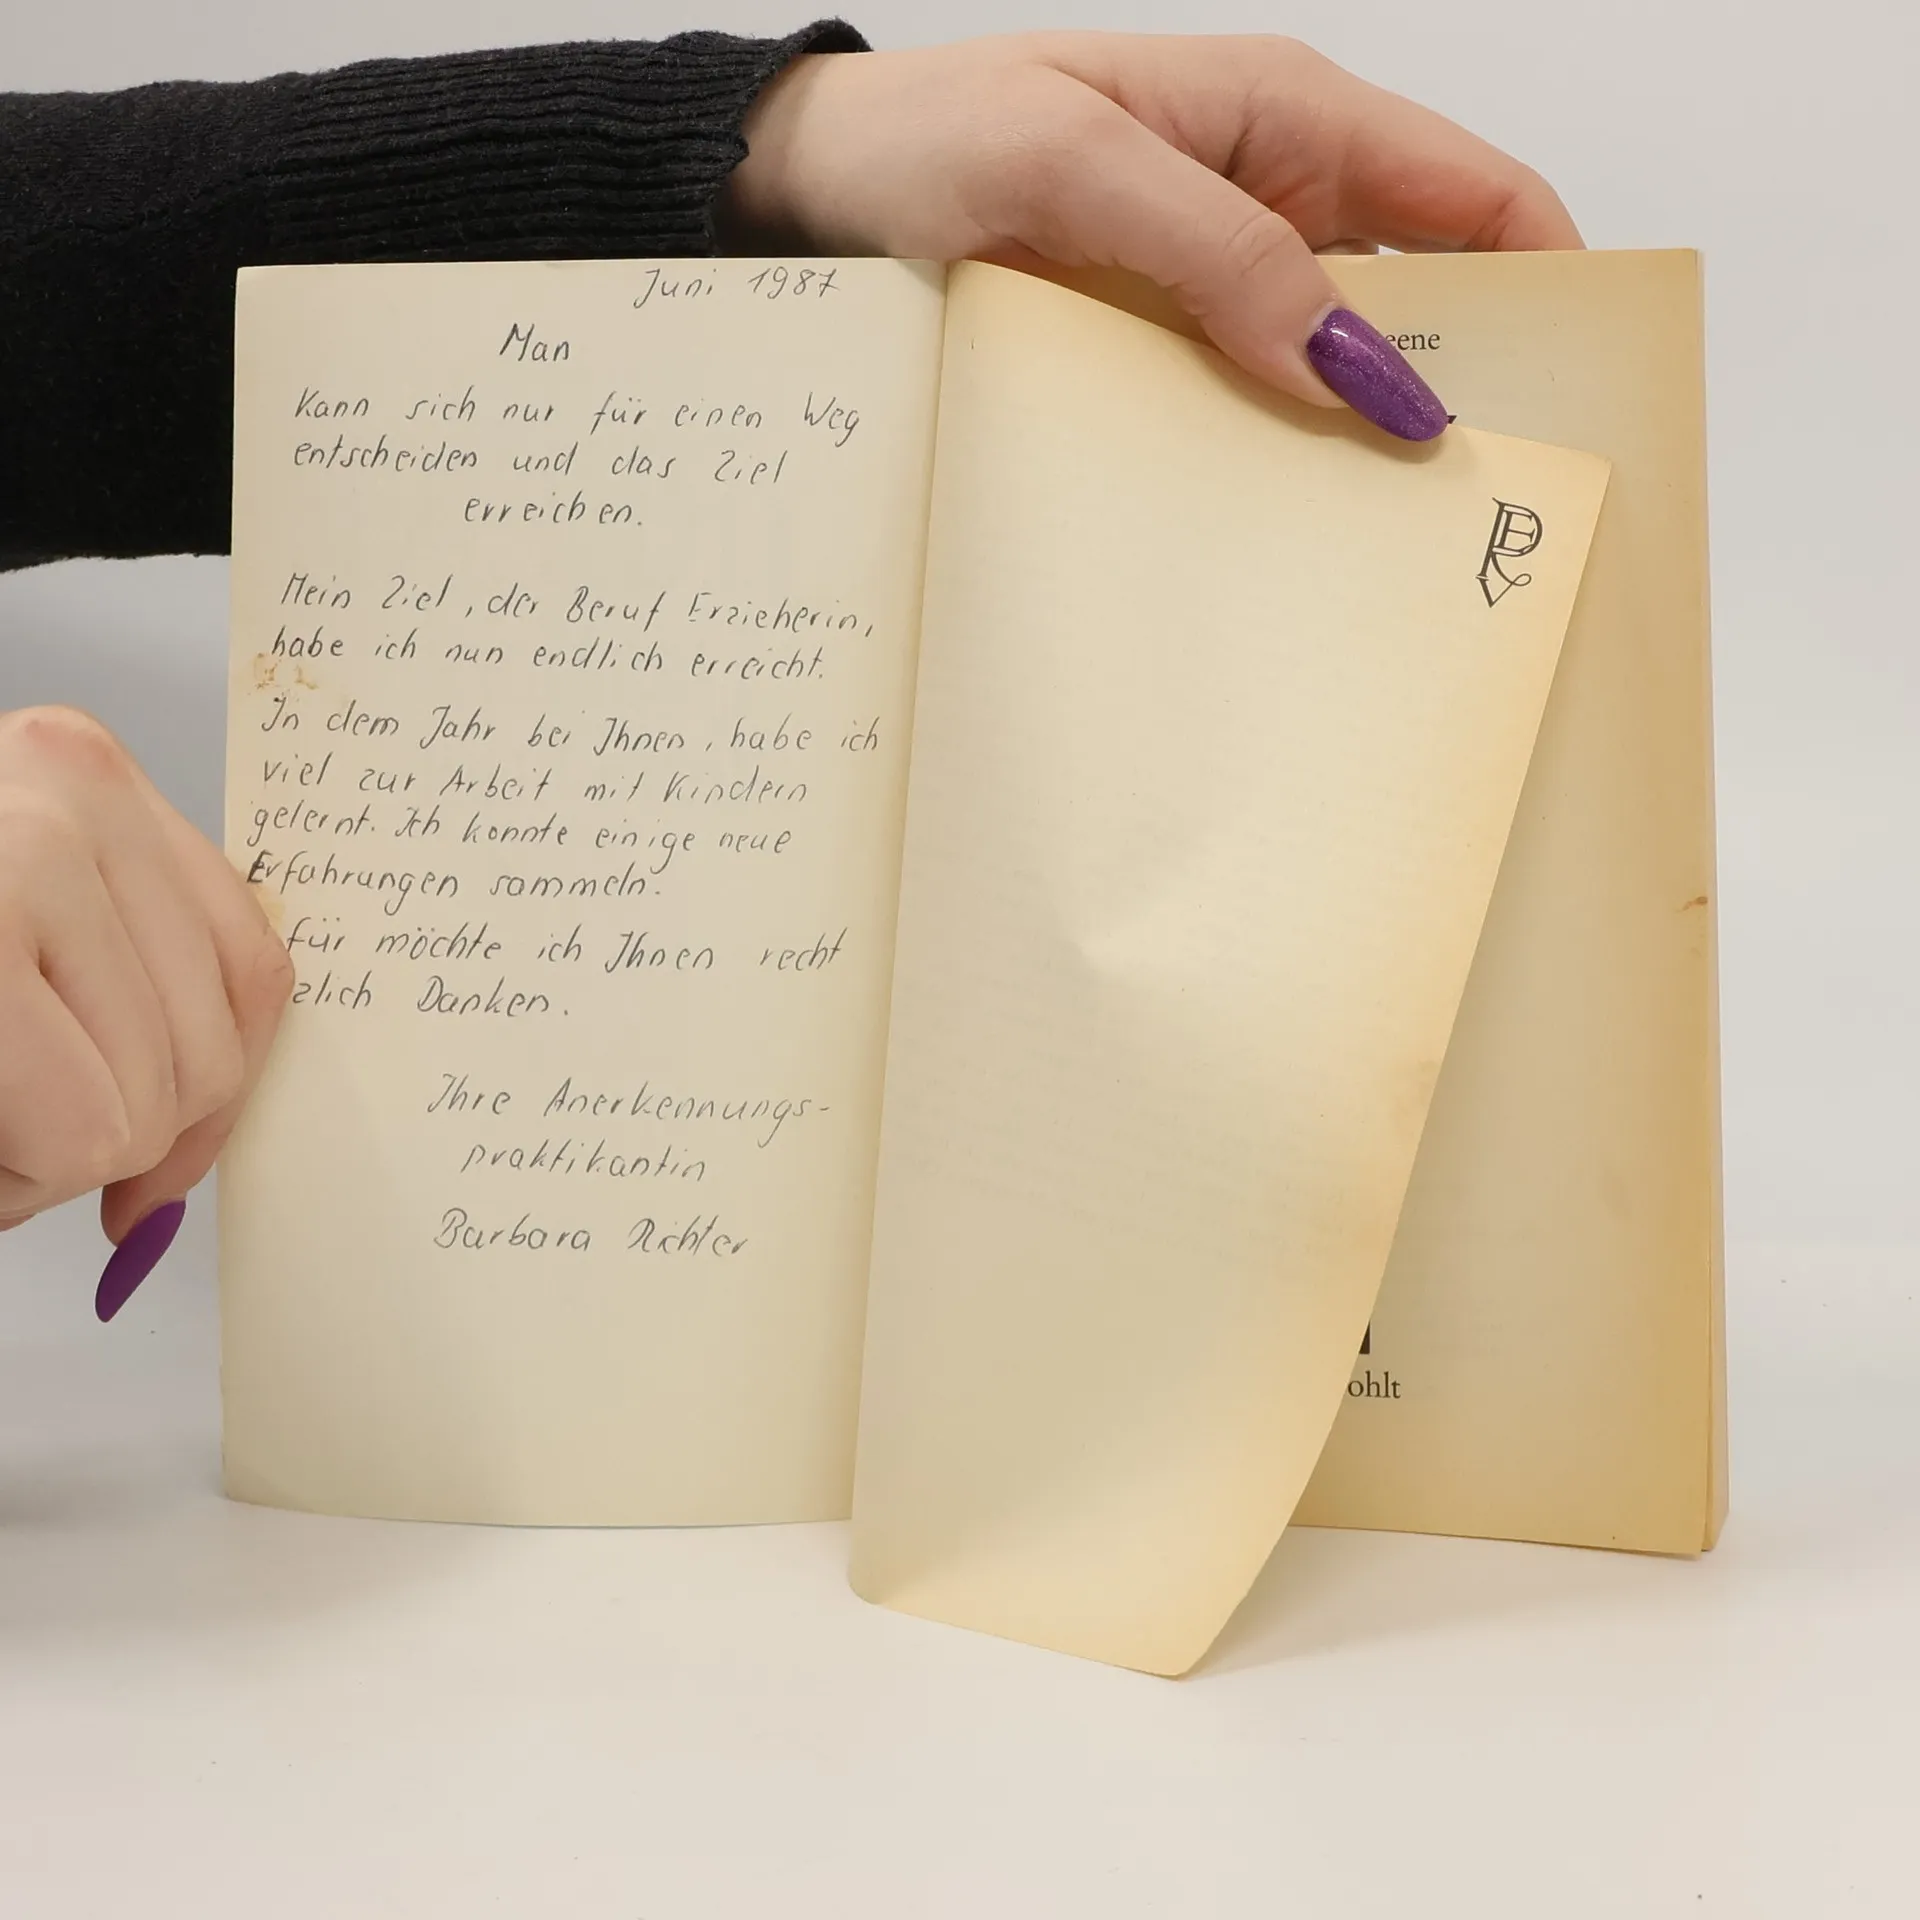 Juni 1987
Man
Kann sich nur für einen Weg
entscheiden und das Ziel
erreichen.
Mein Ziel, der Beruf Erzieherin,
habe ich nun endlich erreicht.
In dem Jahr bei Ihnen, habe ich
viel zur Arbeit mit Kindern
gelernt. Ich konnte einige neue
Erfahrungen sammeln.
für möchte ich Ihnen recht
zlich Danken.
Ihre Anerkennungs-
praktikantin
Barbara Richter
eene
ohlt